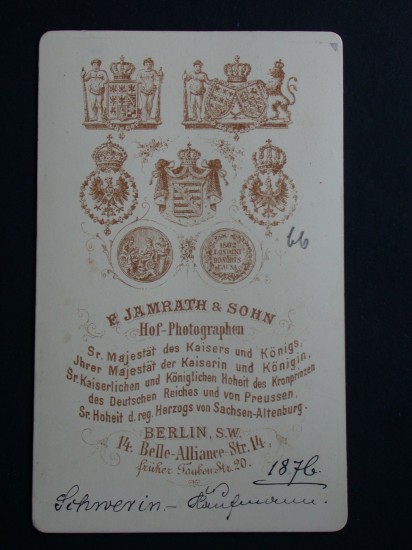 66
F. JAMRATH & SOHN
Hof-Photographen
Sr. Majestät des Kaisers und Königs,
Jhrer Majestät der Kaiserin und Königin,
Sr. Kaiserlichen und Königlichen Hoheit des Kronprinzen
des Deutschen Reiches und von Preussen,
Sr. Hoheit d. reg. Herzogs von Sachsen-Altenburg.
BERLIN, S.W.
14. Belle-Alliance-Str. 14,
früher Tauben Str. 20.
1876.
Schwerin - Kaufmann.